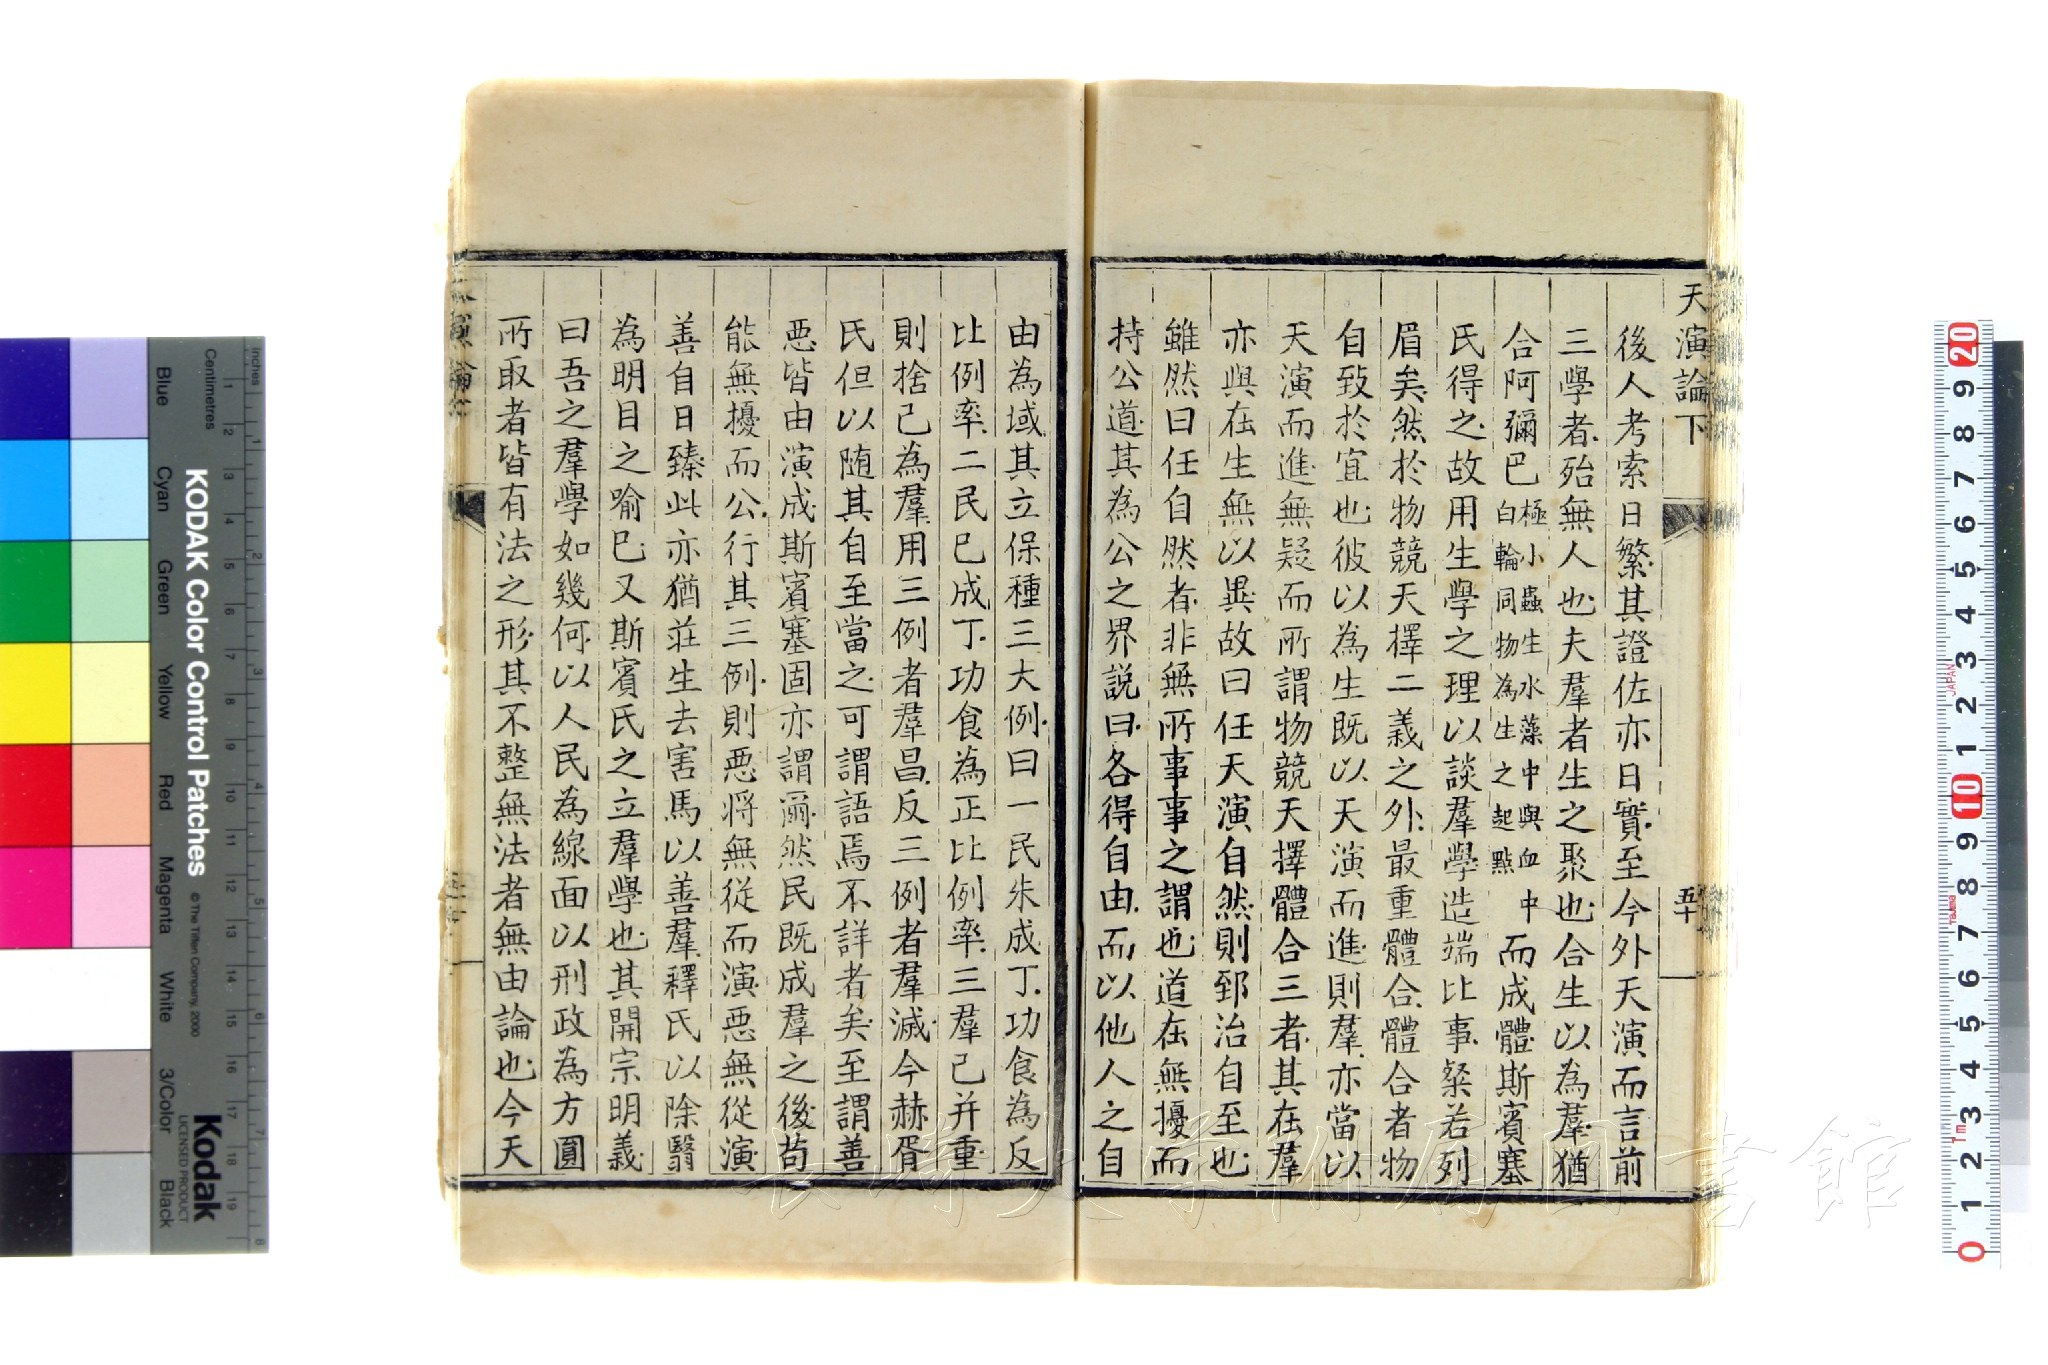 天演論下
五十
後人考索日繁其證佐亦日實至今外天演而言前
三學者殆無人也夫羣者生之聚也合生以為羣猶
合阿彌巴極小蟲生水藻中與血中白輪同物為生之起點而成體斯賓塞
氏得之故用生學之理以談羣學造端比事粲若列
眉矣然於物競天擇二義之外最重體合體合者物
自致於宜也彼以為生既以天演而進則羣亦當以
天演而進無疑而所謂物競天擇體合三者其在羣
亦與在生無以異故曰任天演自然則郅治自至也
雖然曰任自然者非無所事事之謂也道在無擾而
持公道其為公之界說曰各得自由而以他人之自
由為域其立保種三大例曰一民未成丁功食為反
比例率二民已成丁功食為正比例率三羣己并重
則捨己為羣用三例者羣昌反三例者羣滅今赫胥
氏但以随其自至當之可謂語焉不詳者矣至謂善
惡皆由演成斯賓塞固亦謂爾然民既成羣之後苟
能無擾而公行其三例則惡將無從而演惡無從演
善自日臻此亦猶莊生去害馬以善羣釋氏以除翳
為明目之喻已又斯賓氏之立羣學也其開宗明義
曰吾之羣學如幾何以人民為線面以刑政為方圓
所取者皆有法之形其不整無法者無由論也今天
KODAK Color Control Patches
© The Tiffen Company, 2000
Kodak
LICENSED PRODUCT
Inches
Centimetres
Blue
Cyan
Green
Yellow
Red
Magenta
White
3/Color
Black
JAPAN
長崎大学附属図書館